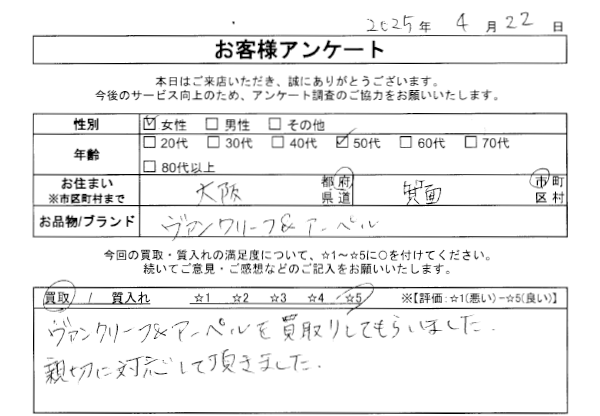 2025年 4月22日
お客様アンケート
本日はご来店いただき、誠にありがとうございます。
今後のサービス向上のため、アンケート調査のご協力をお願いいたします。
性別 ☑女性 □男性 □その他
年齢 □20代 □30代 □40代 ☑50代 □60代 □70代
□80代以上
お住まい
※市区町村まで 大阪 都府県道 箕面 市町区村
お品物/ブランド ヴァンクリーフ&アーペル
今回の買取・質入れの満足度について、☆1~☆5に○を付けてください。
続いてご意見・ご感想などのご記入をお願いいたします。
買取 / 質入れ ☆1 ☆2 ☆3 ☆4 ☆5 ※【評価:☆1(悪い)-☆5(良い)】
ヴァンクリーフ&アーペルを買取りしてもらいました.
親切に対応して頂きました.